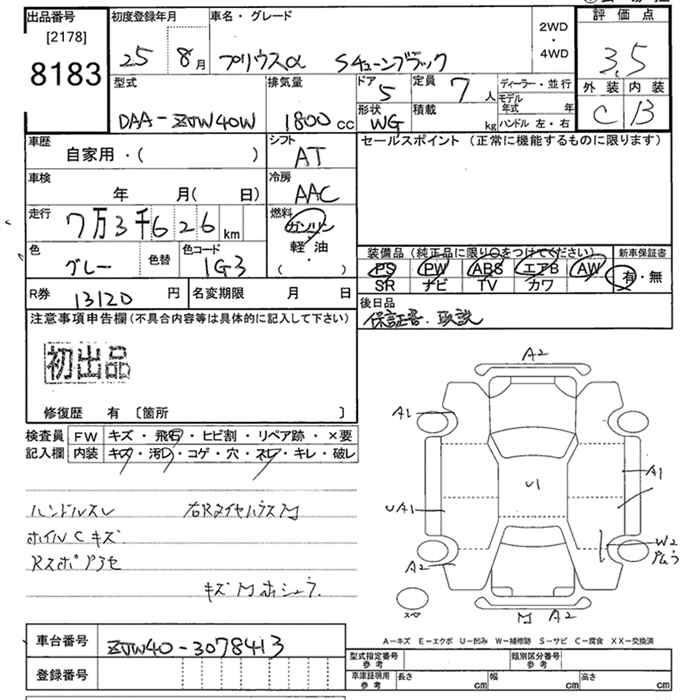 出品番号
[2178]
8183
初度登録年月
25 8月
車名・グレード
プリウスα Sチューンブラック
2WD
・
4WD
評価点
3.5
外装 内装
C B
型式
DAA-ZVW40W
排気量
1800cc
ドア
5
定員
7人
形状
WG
積載
kg
ディーラー・並行
モデル年式 年
ハンドル 左・右
車歴
自家用・( )
シフト
AT
セールスポイント (正常に機能するものに限ります)
車検
年 月( 日)
冷房
AAC
走行
7万3千626km
燃料
ガソリン
軽油
( ・ )
色
グレー
色替
色コード
1G3
装備品 (純正品に限り○をつけてください)
PS PW ABS エアB AW
SR ナビ TV カワ
新車保証書
有・無
R券
13120円
名変期限 月 日
後日品
保証書、取説
注意事項申告欄(不具合内容等は具体的に記入して下さい)
初出品
修復歴 有 〔箇所 〕
検査員
記入欄
FW キズ・飛石・ヒビ割・リペア跡・×要
内装 キズ・汚レ・コゲ・穴・スレ・キレ・破レ
ハンドルスレ
右Rタイヤハウス M
ホイルCキズ
Rスポアセ
キズM
A2
A1
A1
U1
UA1
W2
A2
スペ
M A2
A-キズ E-エクボ U-凹み W-補修跡 S-サビ C-腐食 XX-交換済
車台番号
ZVW40-3078413
登録番号
型式指定番号
参考
類別区分番号
参考
車庫証明用
参考
長さ cm
幅 cm
高さ cm